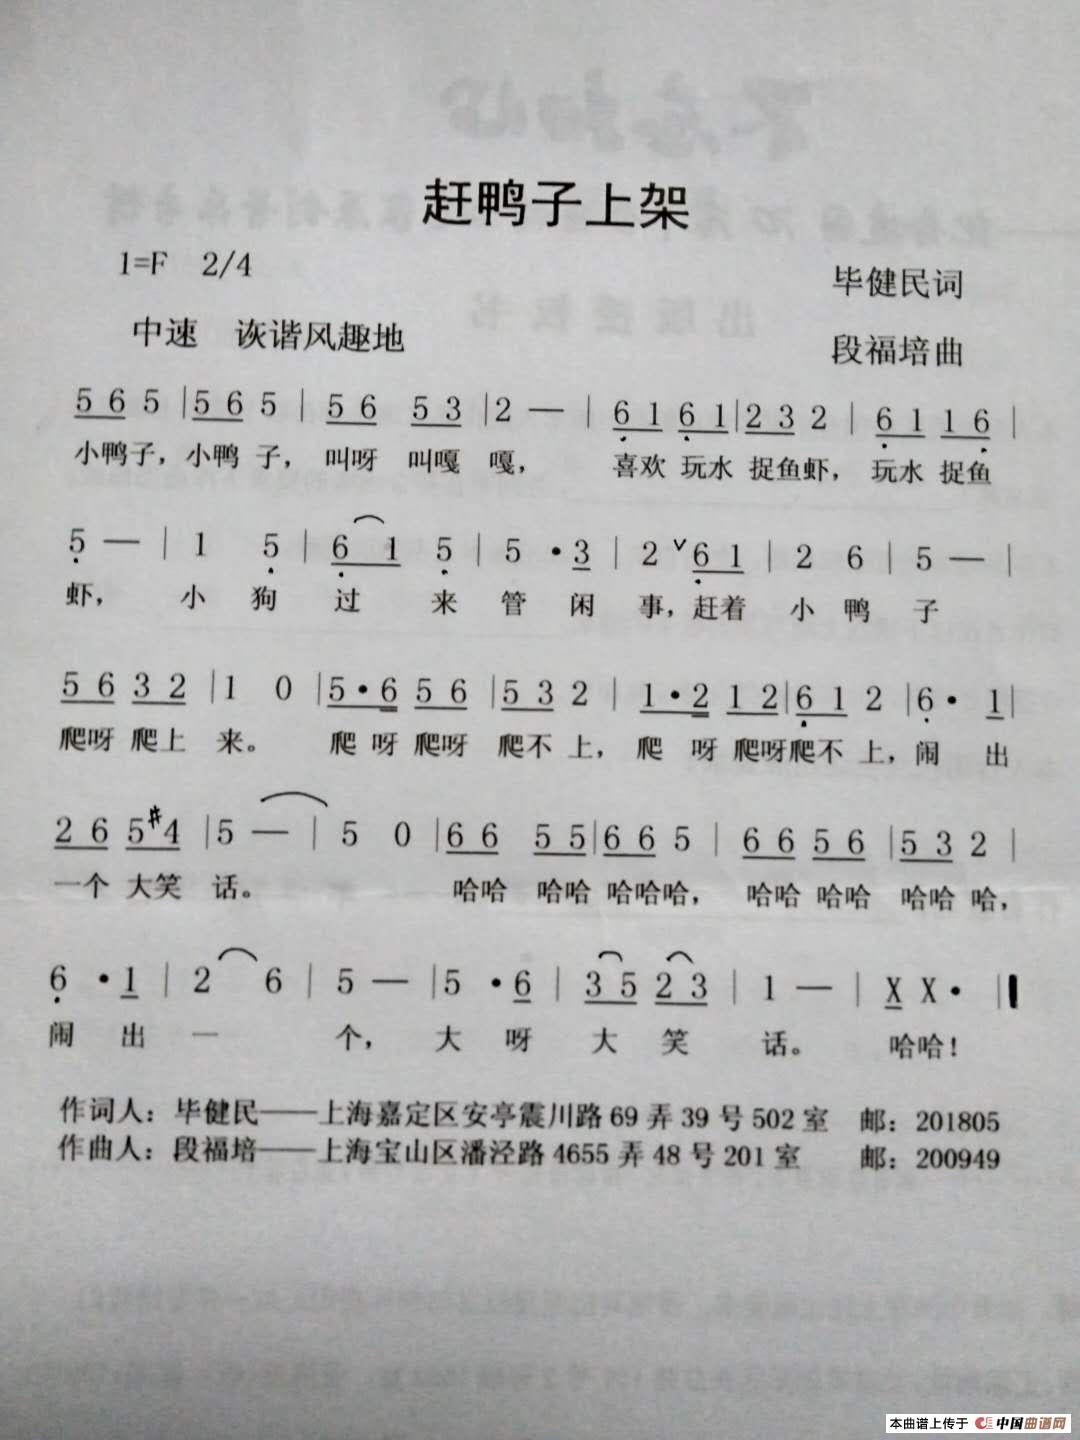 赶鸭子上架
1=F 2/4
毕健民词
中速 诙谐风趣地
段福培曲
5 6 5 | 5 6 5 | 5 6 5 3 | 2 — | 6 1 6 1 | 2 3 2 | 6 1 1 6 |
小鸭子, 小鸭 子, 叫呀 叫嘎 嘎, 喜欢 玩水 捉鱼虾, 玩水 捉鱼
5 — | 1 5 | 6 1 5 | 5 · 3 | 2 ∨ 6 1 | 2 6 | 5 — |
虾, 小 狗 过 来 管 闲 事, 赶着 小 鸭 子
5 6 3 2 | 1 0 | 5 · 6 5 6 | 5 3 2 | 1 · 2 1 2 | 6 1 2 | 6 · 1 |
爬呀 爬上 来。 爬 呀 爬呀 爬不 上, 爬 呀 爬呀爬不 上, 闹 出
2 6 5 #4 | 5 — | 5 0 | 6 6 5 5 | 6 6 5 | 6 6 5 6 | 5 3 2 |
一个 大笑 话。 哈哈 哈哈 哈哈哈, 哈哈 哈哈 哈哈 哈,
6 · 1 | 2 6 | 5 — | 5 · 6 | 3 5 2 3 | 1 — | X X · ‖
闹 出 一 个, 大 呀 大 笑 话。 哈哈!
作词人: 毕健民——上海嘉定区安亭震川路 69 弄 39 号 502 室 邮: 201805
作曲人: 段福培——上海宝山区潘泾路 4655 弄 48 号 201 室 邮: 200949
本曲谱上传于 中国曲谱网